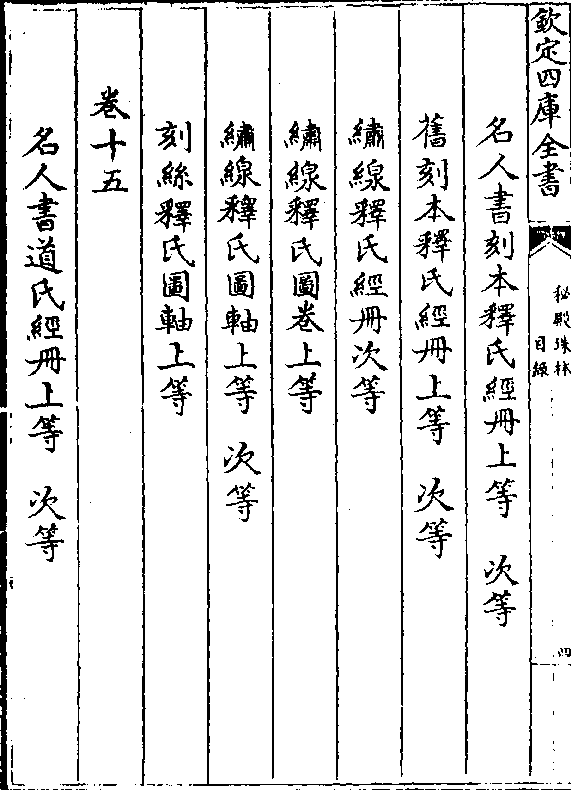 欽定四庫全書
秘殿珠林
目録
四
名人書刻本釋氏經冊上等　次等
舊刻本釋氏經冊上等　次等
繡線釋氏經冊次等
繡線釋氏圖卷上等
繡線釋氏圖軸上等　次等
刻絲釋氏圖軸上等
卷十五
名人書道氏經冊上等　次等